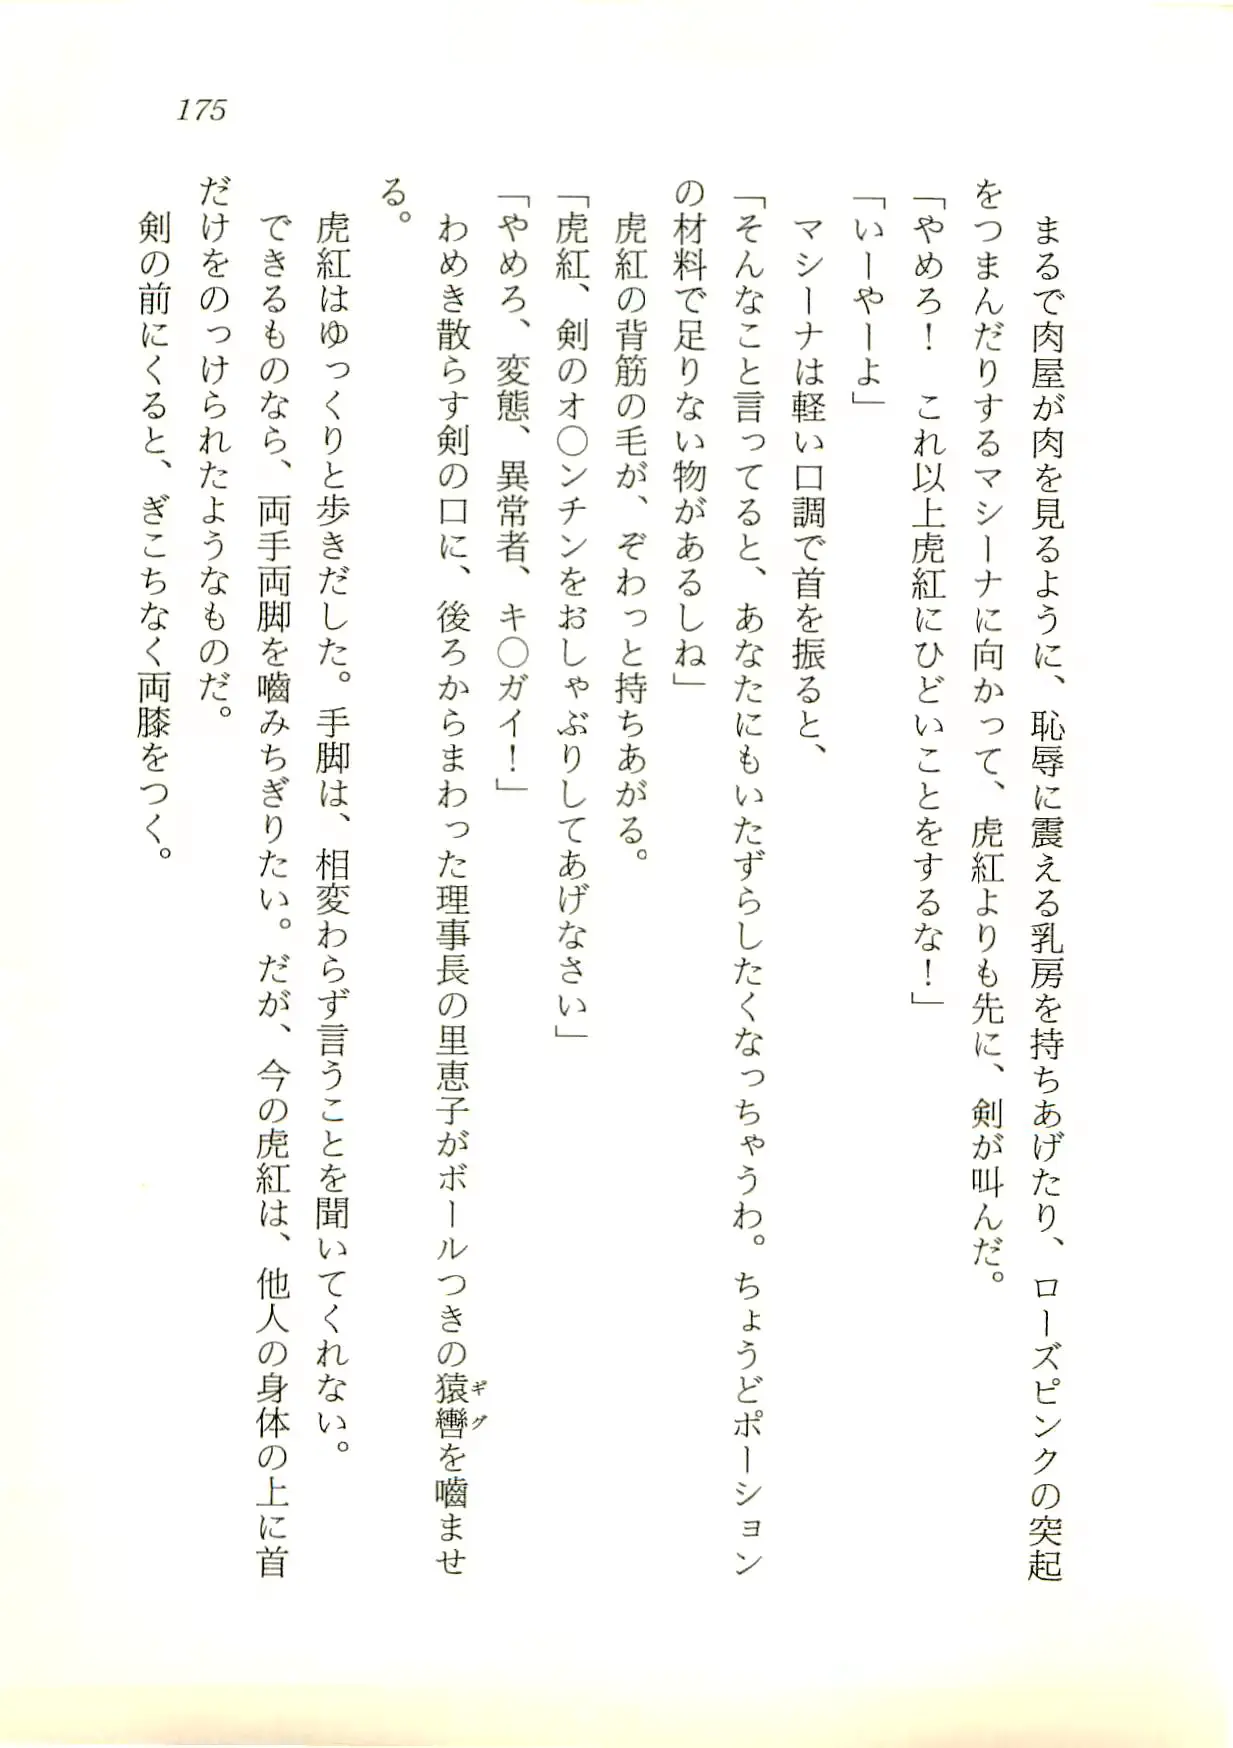 175
まるで肉屋が肉を見るように、恥辱に震える乳房を持ちあげたり、ローズピンクの突起
をつまんだりするマシーナに向かって、虎紅よりも先に、剣が叫んだ。
「やめろ！　これ以上虎紅にひどいことをするな！」
「いーやーよ」
マシーナは軽い口調で首を振ると、
「そんなこと言ってると、あなたにもいたずらしたくなっちゃうわ。ちょうどポーション
の材料で足りない物があるしね」
虎紅の背筋の毛が、ぞわっと持ちあがる。
「虎紅、剣のオ〇ンチンをおしゃぶりしてあげなさい」
「やめろ、変態、異常者、キ〇ガイ！」
わめき散らす剣の口に、後ろからまわった理事長の里恵子がボールつきの猿轡を嚙ませ
ギグ
る。
虎紅はゆっくりと歩きだした。手脚は、相変わらず言うことを聞いてくれない。
できるものなら、両手両脚を嚙みちぎりたい。だが、今の虎紅は、他人の身体の上に首
だけをのっけられたようなものだ。
剣の前にくると、ぎこちなく両膝をつく。